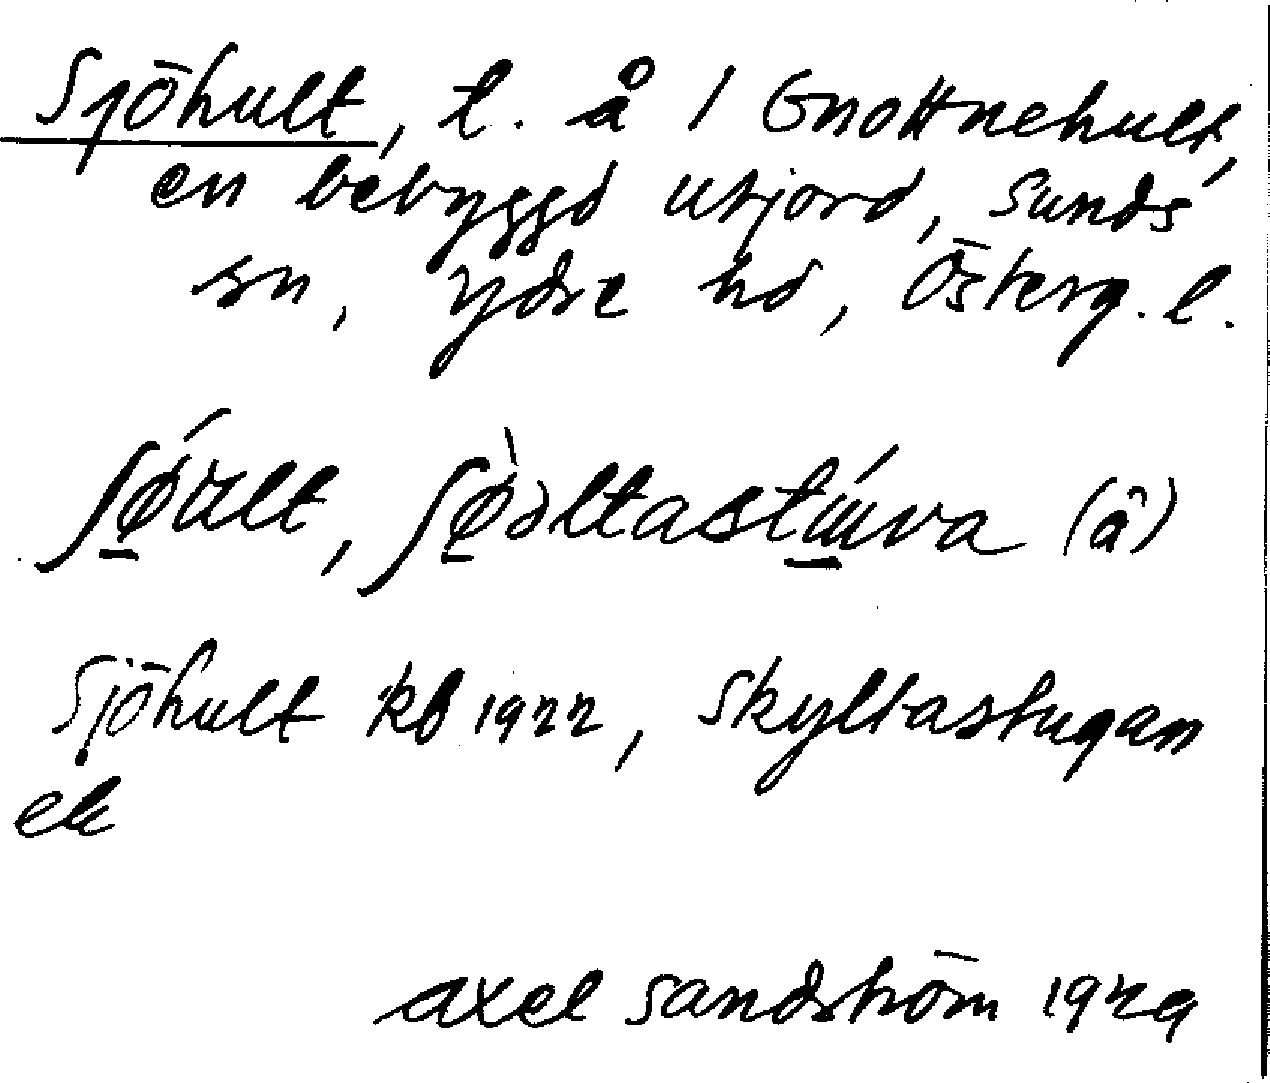 Sjöhult, t. å 1 Gnottnehult,
en bebyggd utjord, Sunds
sn, Ydre hd, Österg. l.
ʃǿ̱ult, ʃø̱̀ltastú̱va (â)
Sjöhult kb 1922, Skyltastugan
ek
Axel Sandström 1929